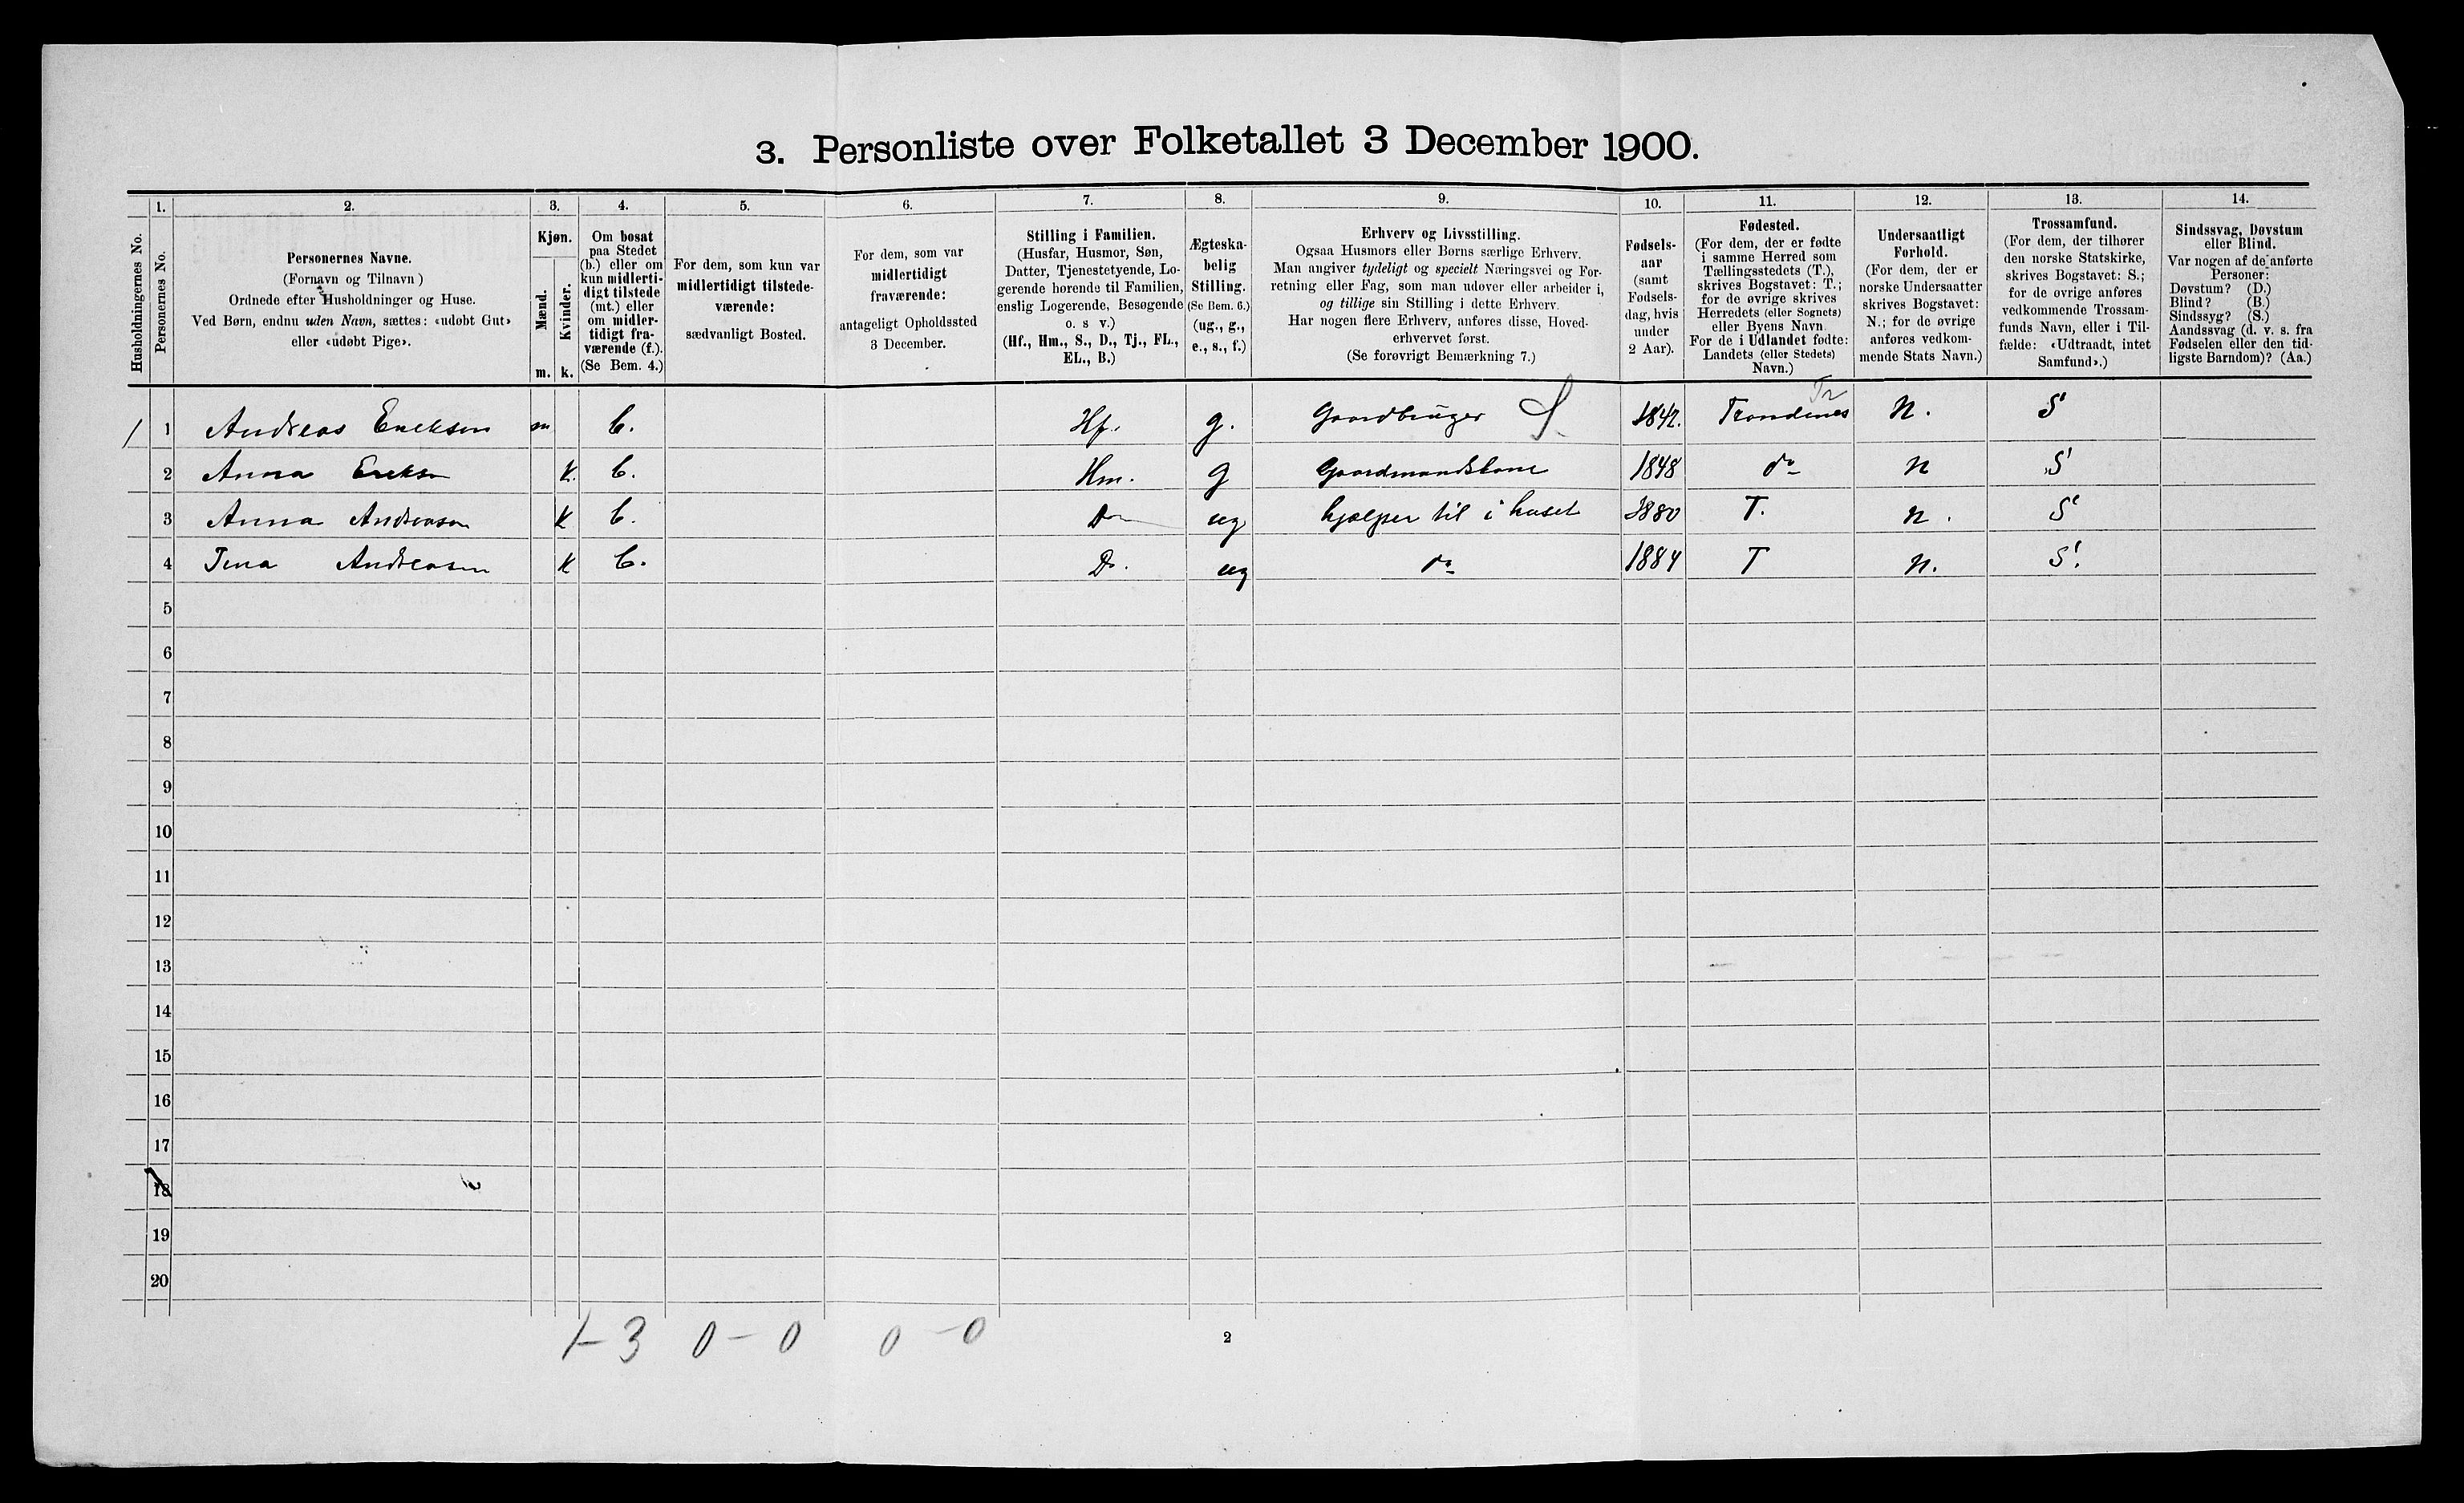 3. Personliste over Folketallet 3 December 1900.
1. 2. 3. 4. 5. 6. 7. 8. 9. 10. 11. 12. 13. 14.
Husholdningernes No.
Personernes No.
Personernes Navne.
(Fornavn og Tilnavn)
Ordnede efter Husholdninger og Huse.
Ved Børn, endnu uden Navn, sættes: «udøbt Gut»
eller «udøbt Pige».
Kjøn.
Mænd.
Kvinder.
m. k.
Om bosat
paa Stedet
(b.) eller om
kun midlerti-
digt tilstede
(mt.) eller
om midler-
tidigt fra-
værende (f.).
(Se Bem. 4.)
For dem, som kun var
midlertidigt tilstede-
værende:
sædvanligt Bosted.
For dem, som var
midlertidigt
fraværende:
antageligt Opholdssted
3 December.
Stilling i Familien.
(Husfar, Husmor, Søn,
Datter, Tjenestetyende, Lo-
gerende hørende til Familien,
enslig Logerende, Besøgende
o. s v.)
(Hf., Hm., S., D., Tj., FL.,
EL., B.)
Ægteska-
belig
Stilling.
(Se Bem. 6.)
(ug., g.,
e., s., f.)
Erhverv og Livsstilling.
Ogsaa Husmors eller Børns særlige Erhverv.
Man angiver tydeligt og specielt Næringsvei og For-
retning eller Fag, som man udøver eller arbeider i,
og tillige sin Stilling i dette Erhverv.
Har nogen flere Erhverv, anføres disse, Hoved-
erhvervet først.
(Se forøvrigt Bemærkning 7.)
Fødsels-
aar
(samt
Fødsels-
dag, hvis
under
2 Aar).
Fødested.
(For dem, der er fødte
i samme Herred som
Tællingsstedets (T.),
skrives Bogstavet: T.;
for de øvrige skrives
Herredets (eller Sognets)
eller Byens Navn.
For de i Udlandet fødte:
Landets (eller Stedets)
Navn.)
Undersaatligt
Forhold.
(For dem, der er
norske Undersaatter
skrives Bogstavet:
N.; for de øvrige
anføres vedkom-
mende Stats Navn.)
Trossamfund.
(For dem, der tilhører
den norske Statskirke,
skrives Bogstavet: S.;
for de øvrige anføres
vedkommende Trossam-
funds Navn, eller i Til-
fælde: «Udtraadt, intet
Samfund».)
Sindssvag, Døvstum
eller Blind.
Var nogen af de anførte
Personer:
Døvstum? (D.)
Blind? (B.)
Sindssyg? (S.)
Aandssvag (d. v. s. fra
Fødselen eller den tid-
ligste Barndom)? (Aa.)
Tr
1 1 Andreas Ereksen m b. Hf. g. Gaardbruger S 1842. Trondenes N. S
2 Anna Ereksn k. b. Hm. g Gaardmandskone 1848 do N S
3 Anna Andreasen k b. D ug hjælper til i huset 1880 T. N. S
4 Jena Andreasen k b. D. ug do 1884 T N. S.
5
6
7
8
9
10
11
12
13
14
15
16
17
18
19
20
1-3 0-0 0-0
2